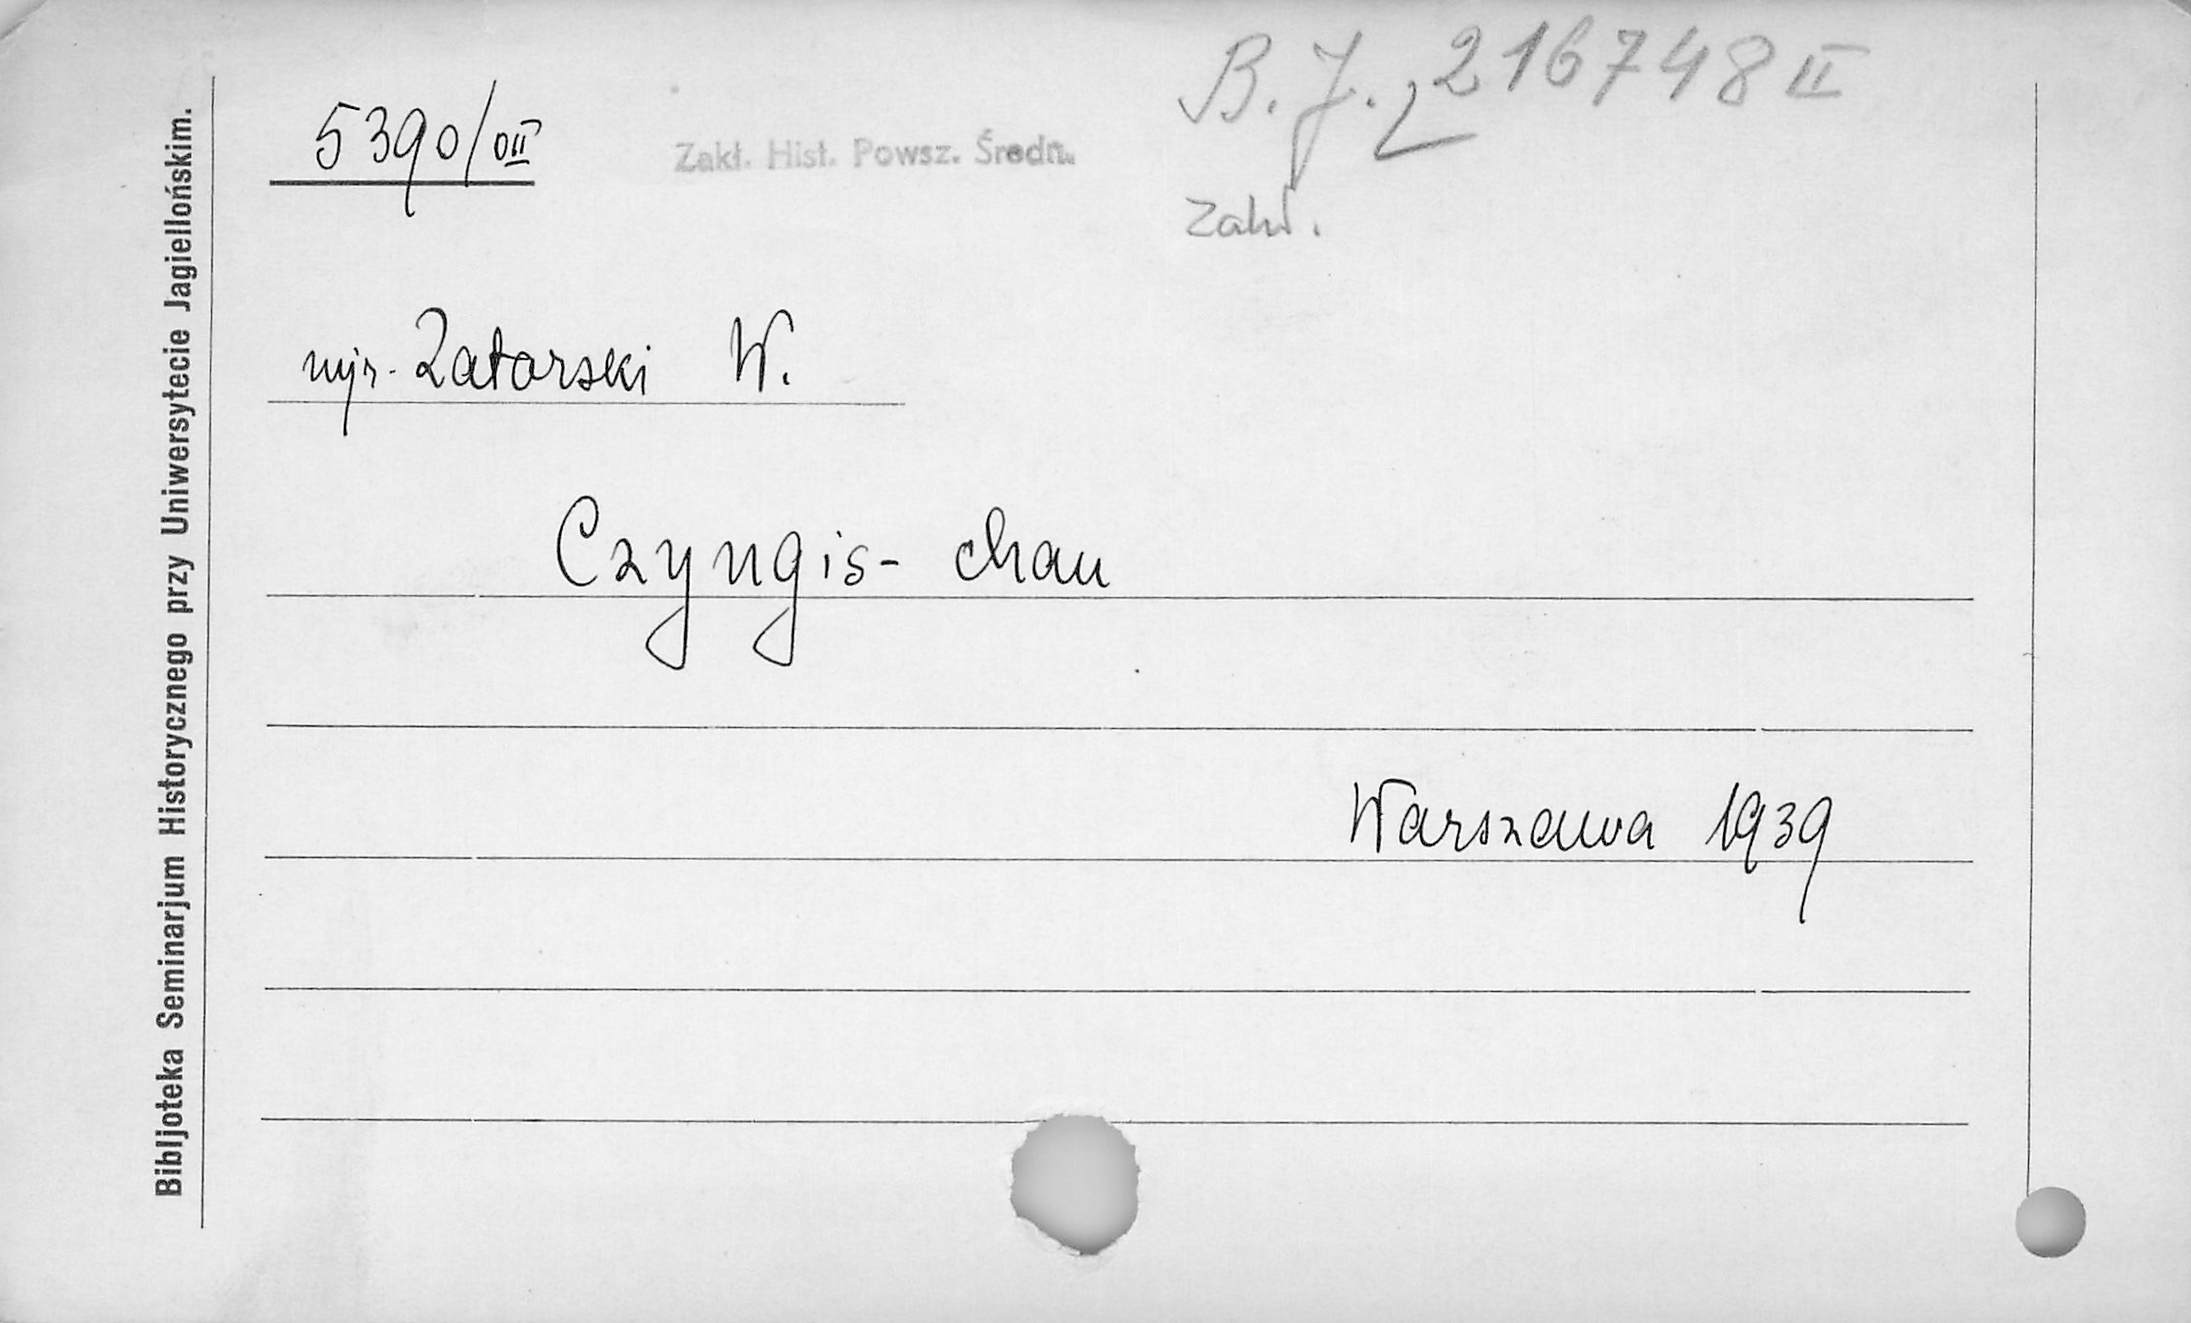 B. J. 216748 II
5390/0II
Zakł. Hist. Powsz. Średn.
Zakł.
mjr. Zatorski W.
Czyngis- chan
Warszawa 1939
Bibljoteka Seminarjum Historycznego przy Uniwersytecie Jagiellońskim.